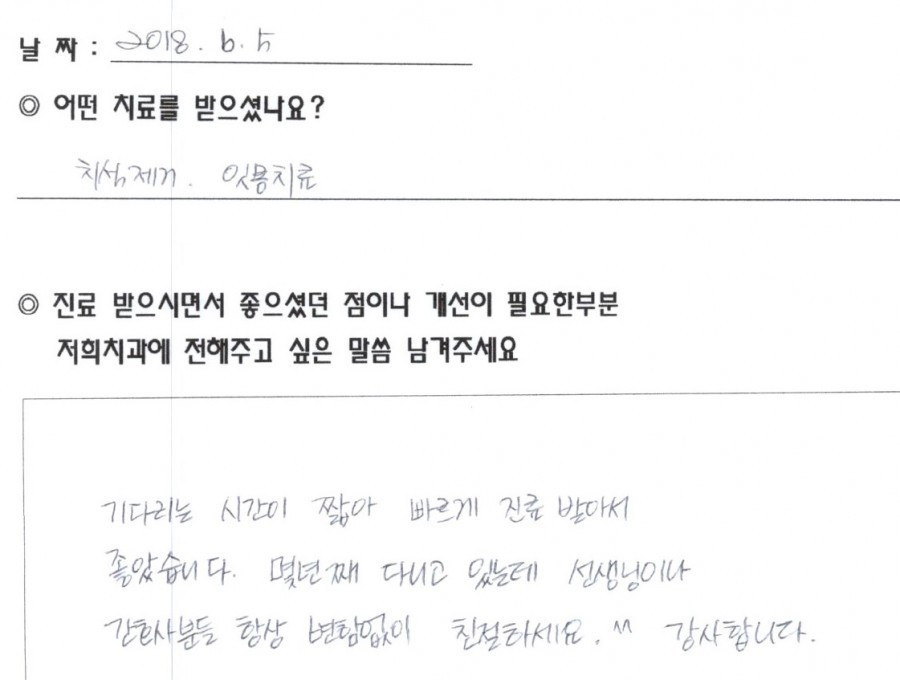 날 짜 : 2018. 6. 5
◎ 어떤 치료를 받으셨나요?
치석제거. 잇몸치료
◎ 진료 받으시면서 좋으셨던 점이나 개선이 필요한부분
저희치과에 전해주고 싶은 말씀 남겨주세요
기다리는 시간이 짧아 빠르게 진료 받아서
좋았습니다. 몇년째 다니고 있는데 선생님이나
간호사분들 항상 변함없이 친절하세요. ^^ 감사합니다.